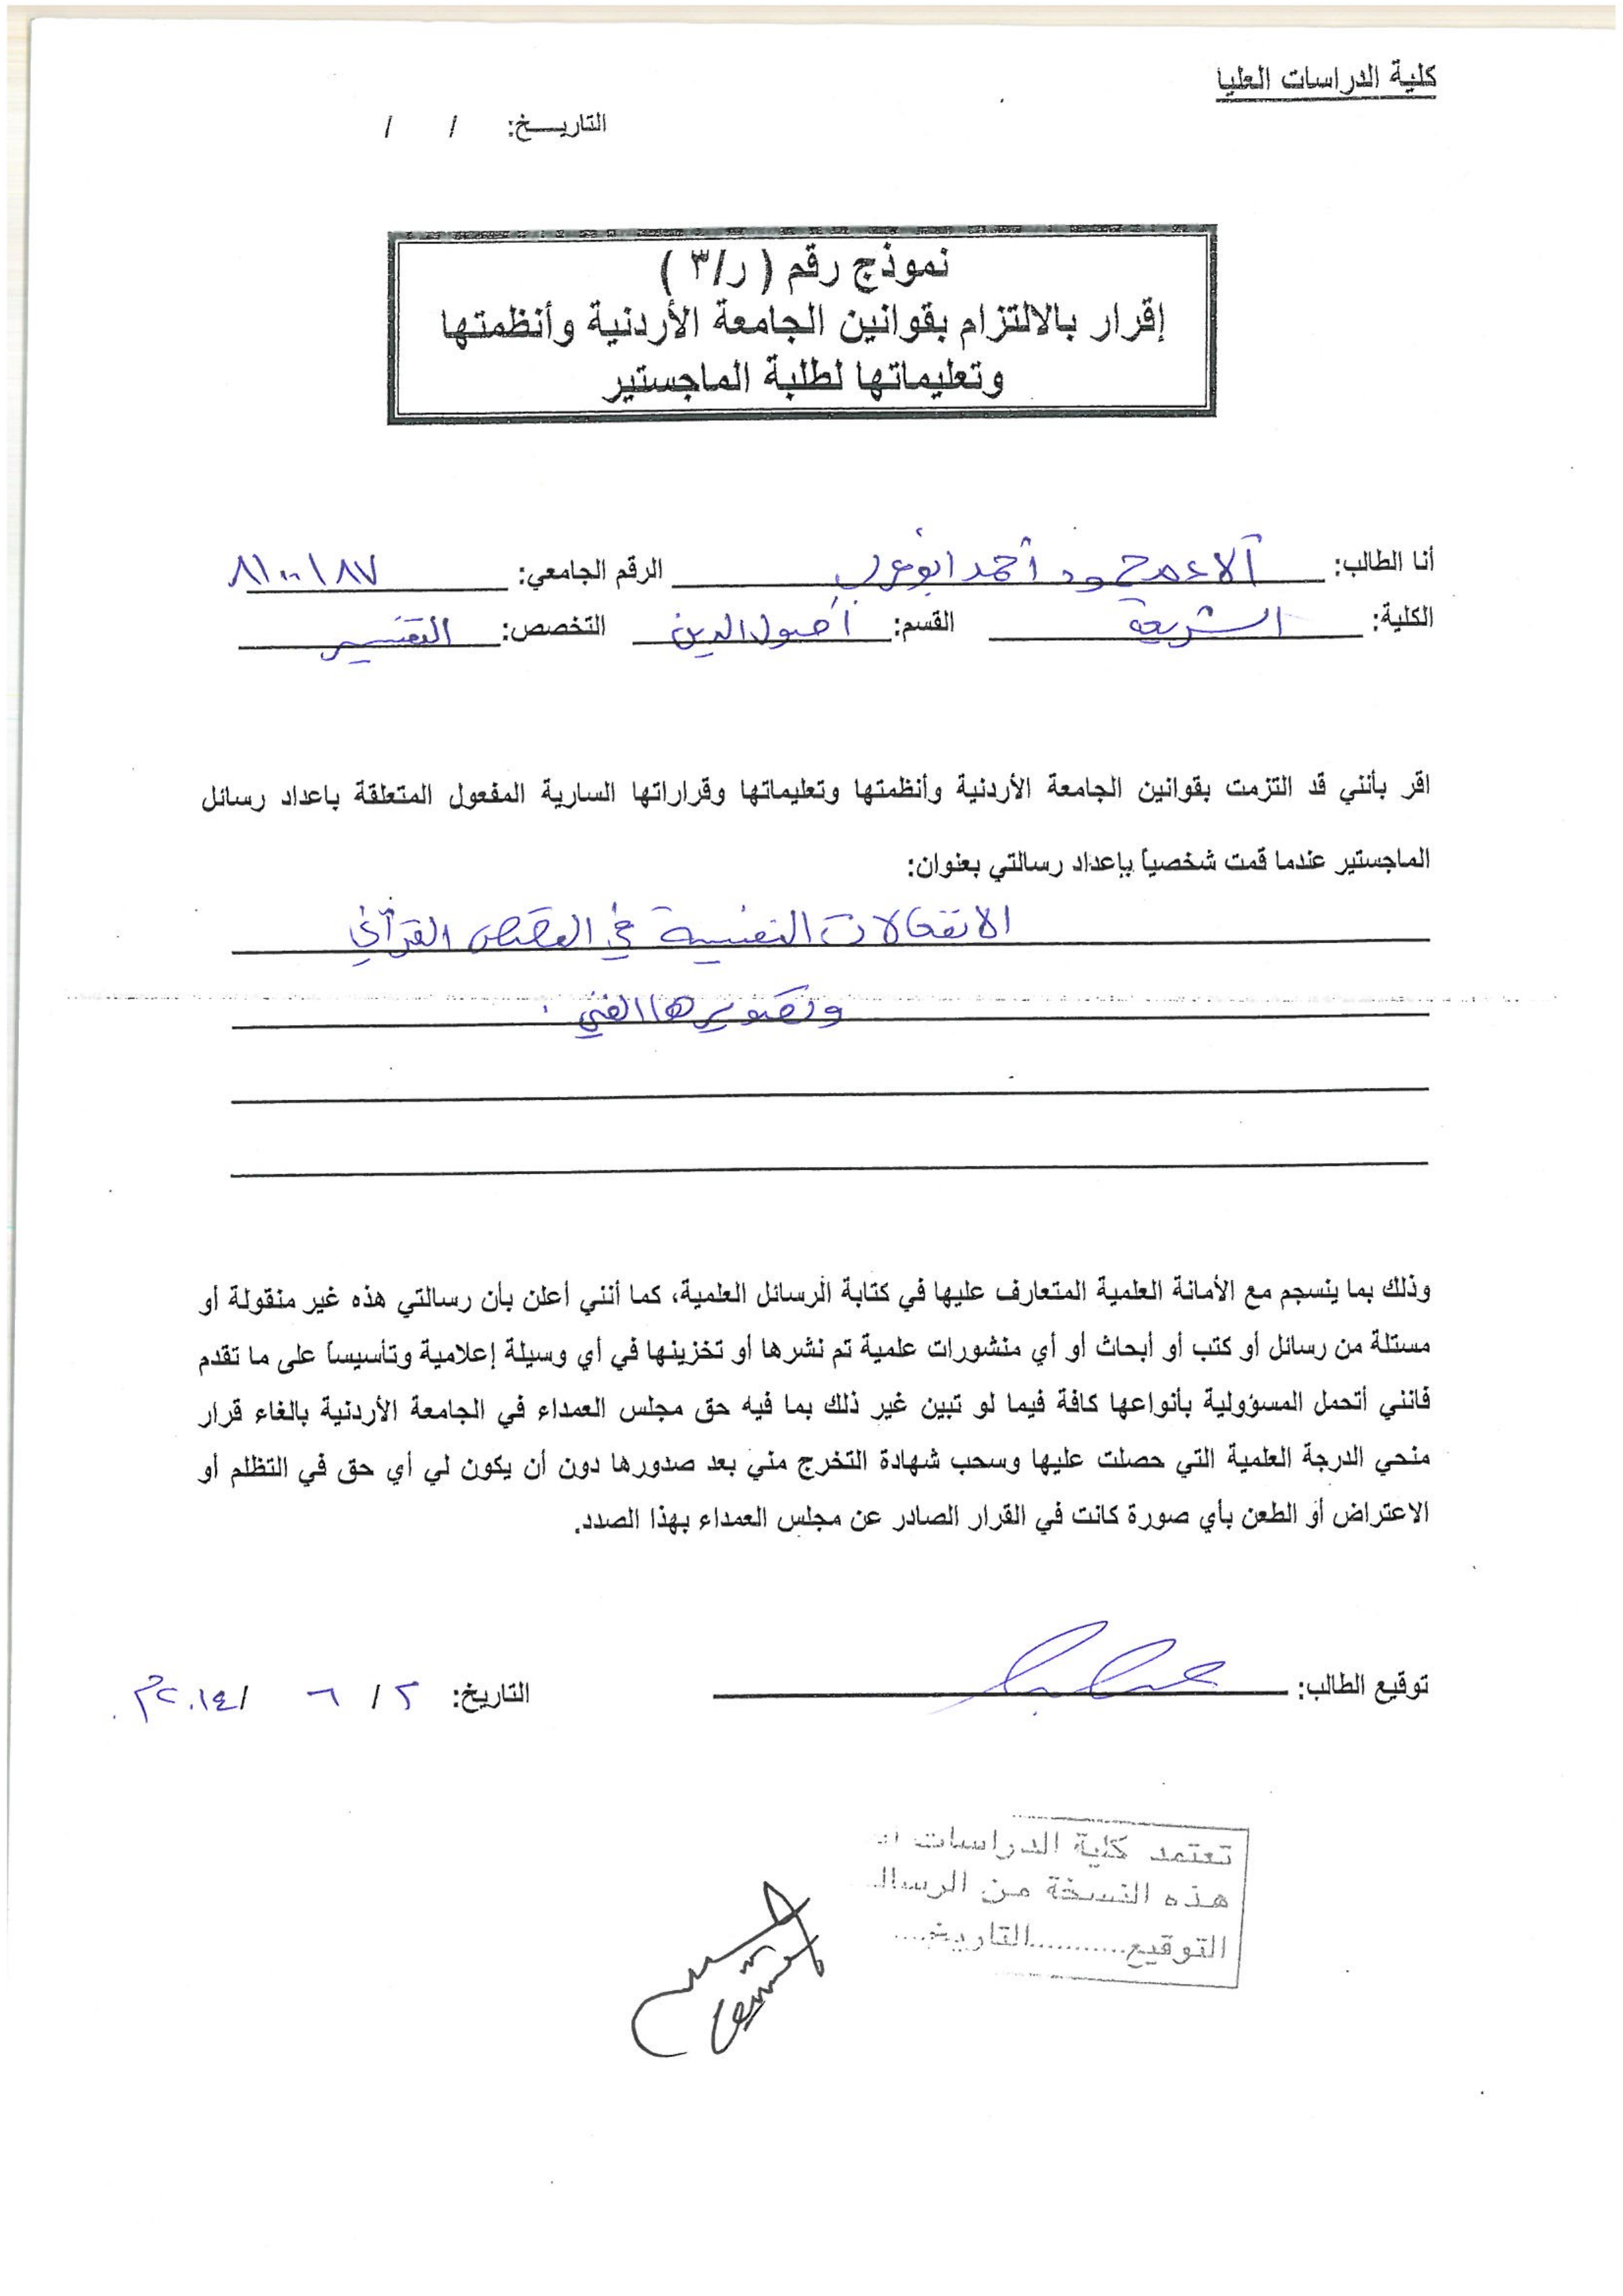 كلية الدراسات العليا
التاريـــخ: / /
نموذج رقم ( ر/٣ )
إقرار بالالتزام بقوانين الجامعة الأردنية وأنظمتها
وتعليماتها لطلبة الماجستير
أنا الطالب: آلاء محمود أحمد أبو الرقم الجامعي: ٨١٠٠١٨٧
الكلية: الشريعة القسم: أصول الدين التخصص: التفسير
اقر بأنني قد التزمت بقوانين الجامعة الأردنية وأنظمتها وتعليماتها وقراراتها السارية المفعول المتعلقة باعداد رسائل
الماجستير عندما قمت شخصياً بإعداد رسالتي بعنوان:
الانفعالات النفسية في القصص القرآني
وتصويرها الفني .
وذلك بما ينسجم مع الأمانة العلمية المتعارف عليها في كتابة الرسائل العلمية، كما أنني أعلن بأن رسالتي هذه غير منقولة أو
مستلة من رسائل أو كتب أو أبحاث أو أي منشورات علمية تم نشرها أو تخزينها في أي وسيلة إعلامية وتأسيساً على ما تقدم
فانني أتحمل المسؤولية بأنواعها كافة فيما لو تبين غير ذلك بما فيه حق مجلس العمداء في الجامعة الأردنية بالغاء قرار
منحي الدرجة العلمية التي حصلت عليها وسحب شهادة التخرج مني بعد صدورها دون أن يكون لي أي حق في التظلم أو
الاعتراض أو الطعن بأي صورة كانت في القرار الصادر عن مجلس العمداء بهذا الصدد.
توقيع الطالب: التاريخ: ٢ / ٦ / ٢٠١٤م.
تعتمد كلية الدراسات
هذه النسخة من الرسالـ
التوقيع...........التاريخ....